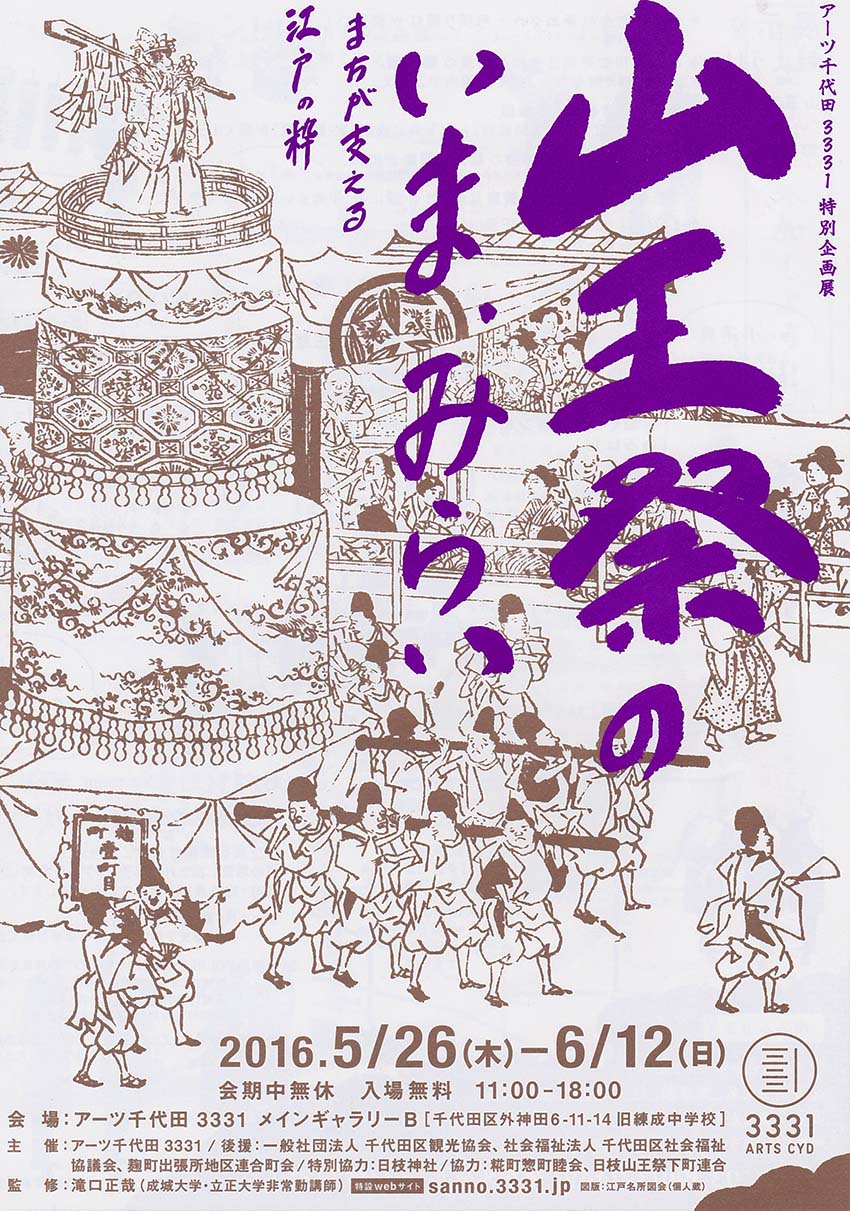 アーツ千代田 3331 特別企画展
山王祭の
いま・みらい
まちが支える
江戸の粋
麹町壹町目
2016.5/26(木)−6/12(日)
会期中無休 入場無料 11:00-18:00
会 場:アーツ千代田 3331 メインギャラリーB [千代田区外神田6-11-14 旧練成中学校]
主 催:アーツ千代田 3331 / 後援:一般社団法人 千代田区観光協会、社会福祉法人 千代田区社会福祉
協議会、麹町出張所地区連合町会 / 特別協力:日枝神社 / 協力:糀町惣町睦会、日枝山王祭下町連合
監 修:滝口正哉(成城大学・立正大学非常勤講師) 特設webサイト sanno.3331.jp 図版:江戸名所図会(個人蔵)
3331
ARTS CYD